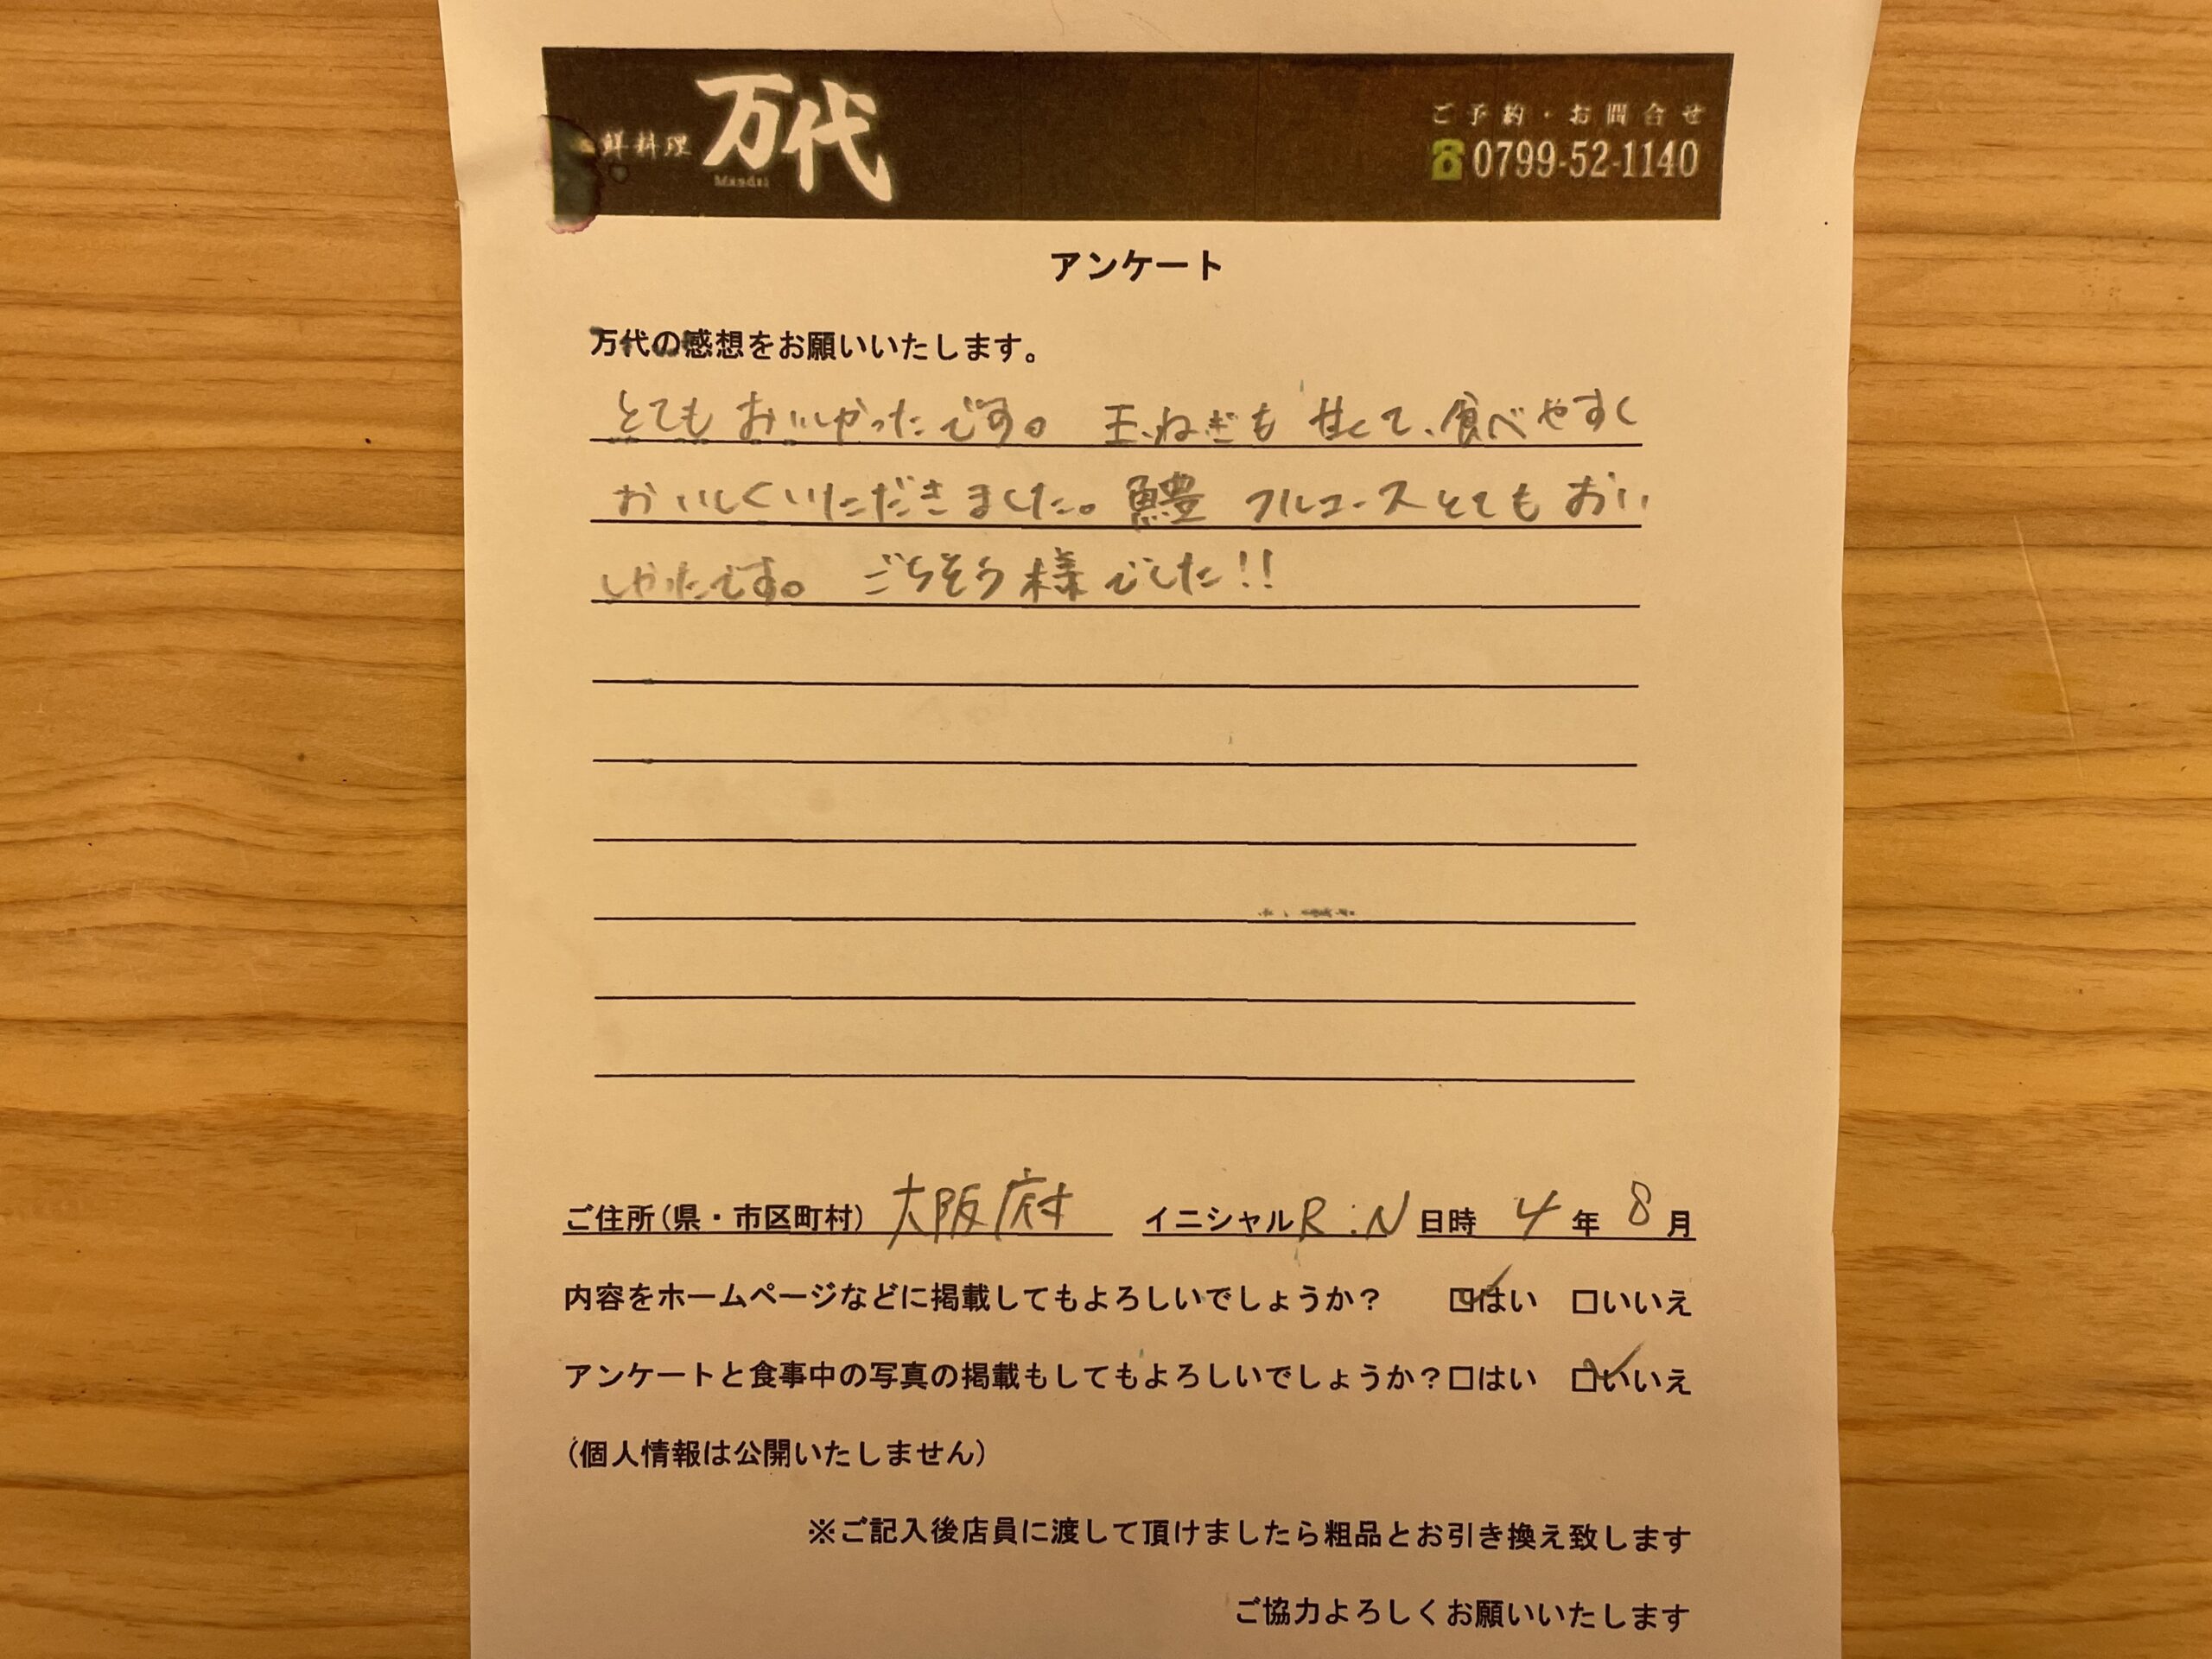 鮮料理 万代
Mandai
ご予約・お問合せ
0799-52-1140
アンケート
万代の感想をお願いいたします。
とてもおいしかったです。玉ねぎも甘くて、食べやすく
おいしくいただきました。鱧フルコースとてもおい
しかったです。ごちそう様でした!!
ご住所(県・市区町村) 大阪府 イニシャル R.N 日時 4年 8月
内容をホームページなどに掲載してもよろしいでしょうか? ☑はい □いいえ
アンケートと食事中の写真の掲載もしてもよろしいでしょうか?□はい ☑いいえ
(個人情報は公開いたしません)
※ご記入後店員に渡して頂けましたら粗品とお引き換え致します
ご協力よろしくお願いいたします